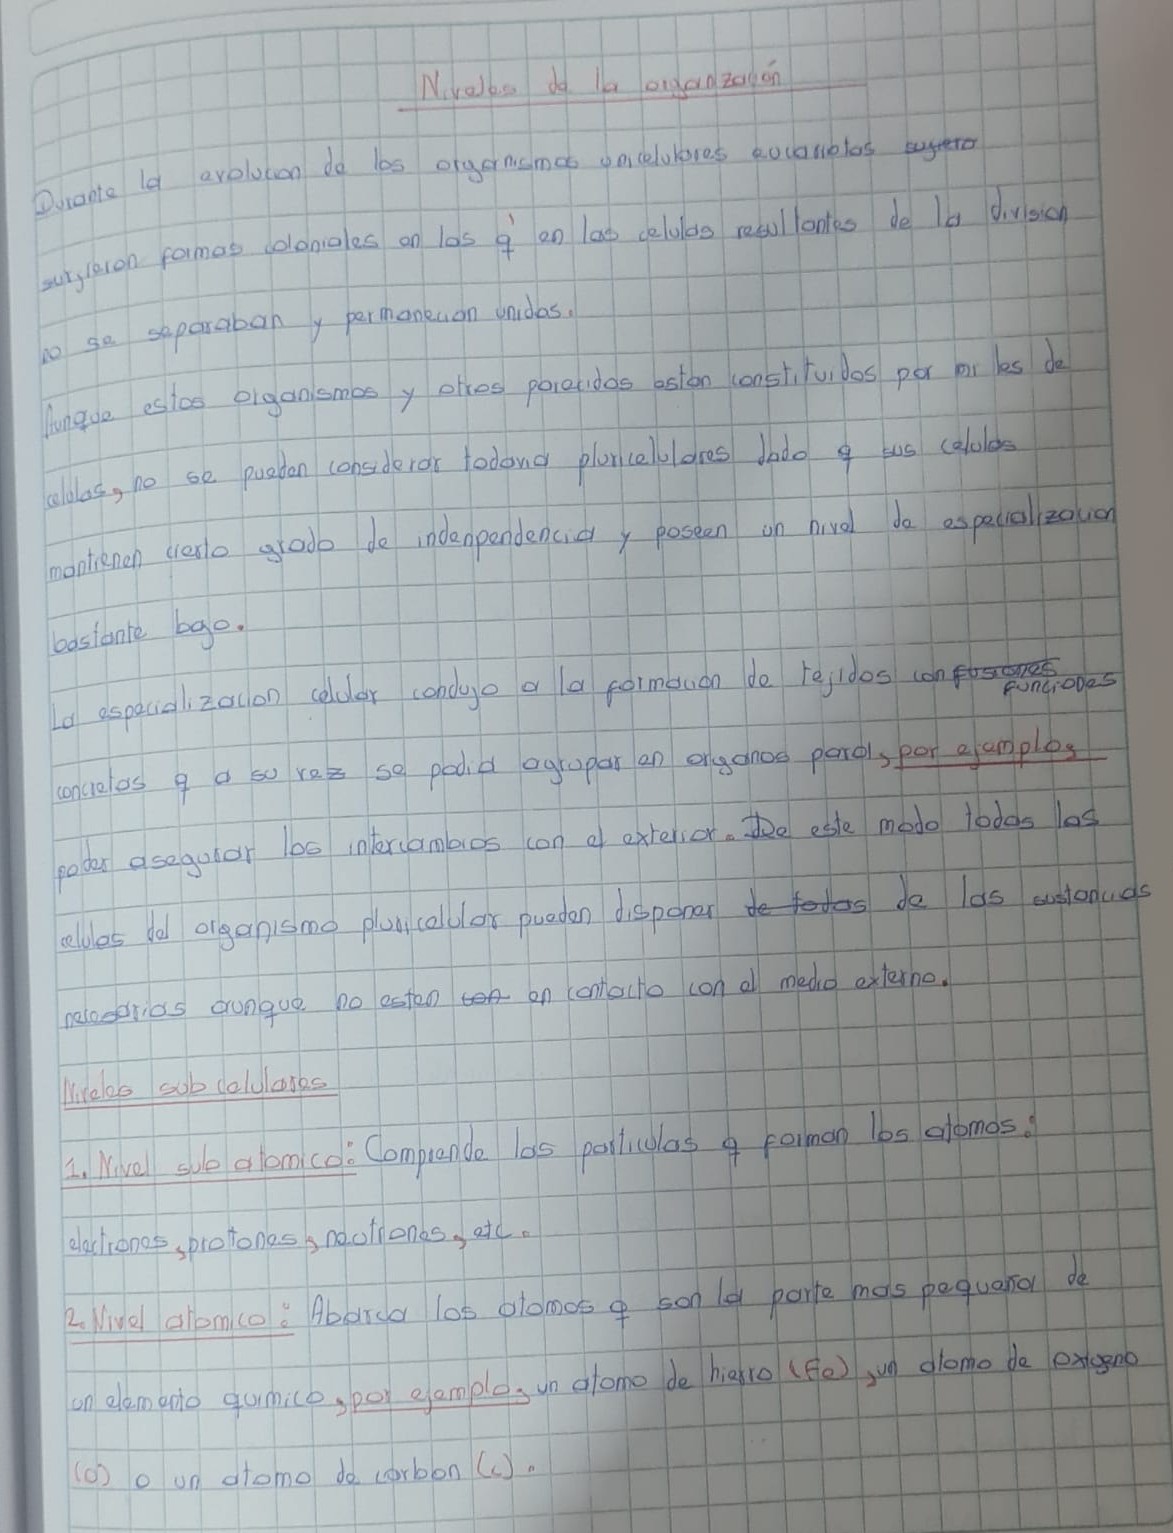 Niveles de la organización
Durante la evolucion de los organismos unicelulares eucariotas
surgieron formas coloniales en las q' en las celulas resultantes de la division
no se separaban y permanecian unidas.
Aunque estos organismos y otros parecidos estan constituidos por miles de
celulas, no se pueden considerar todavia pluricelulares dado q sus celulas
mantienen cierto grado de indenpendencia y poseen un nivel de especializacion
bastante bajo.
La especializacion celular condujo a la formacion de tejidos con funciones
concretas q a su vez se podia agrupar en organos para, por ejemplo,
poder asegurar los intercambios con el exterior. De este modo todas las
celulas del organismo pluricelular pueden disponer de todas de las sustancias
necesarias aunque no esten con en contacto con el medio externo.
Niveles sub celulares
1. Nivel sub atomico: Comprende las particulas q forman los atomos:
electrones, protones, neutrones, etc.
2. Nivel atomico: Abarca los atomos q son la parte mas pequeña de
un elemento quimico, por ejemplo, un atomo de hierro (Fe), un atomo de oxigeno
(O) o un atomo de carbon (C).